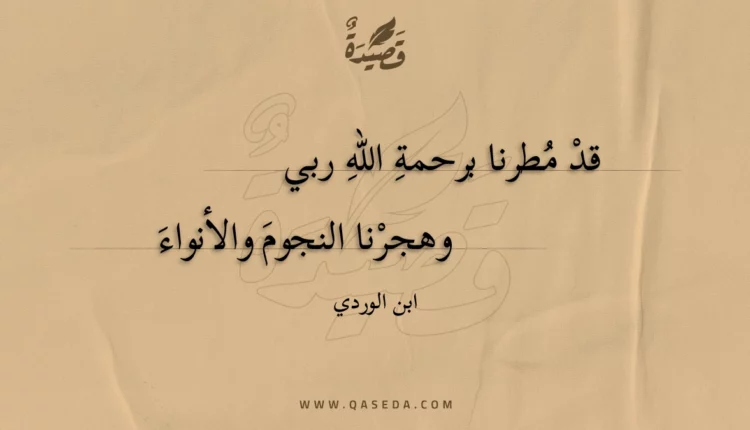 قَصِيدَةٌ
قدْ مُطرنا برحمةِ اللهِ ربي
وهجرْنا النجومَ والأنواءَ
ابن الوردي
WWW.QASEDA.COM